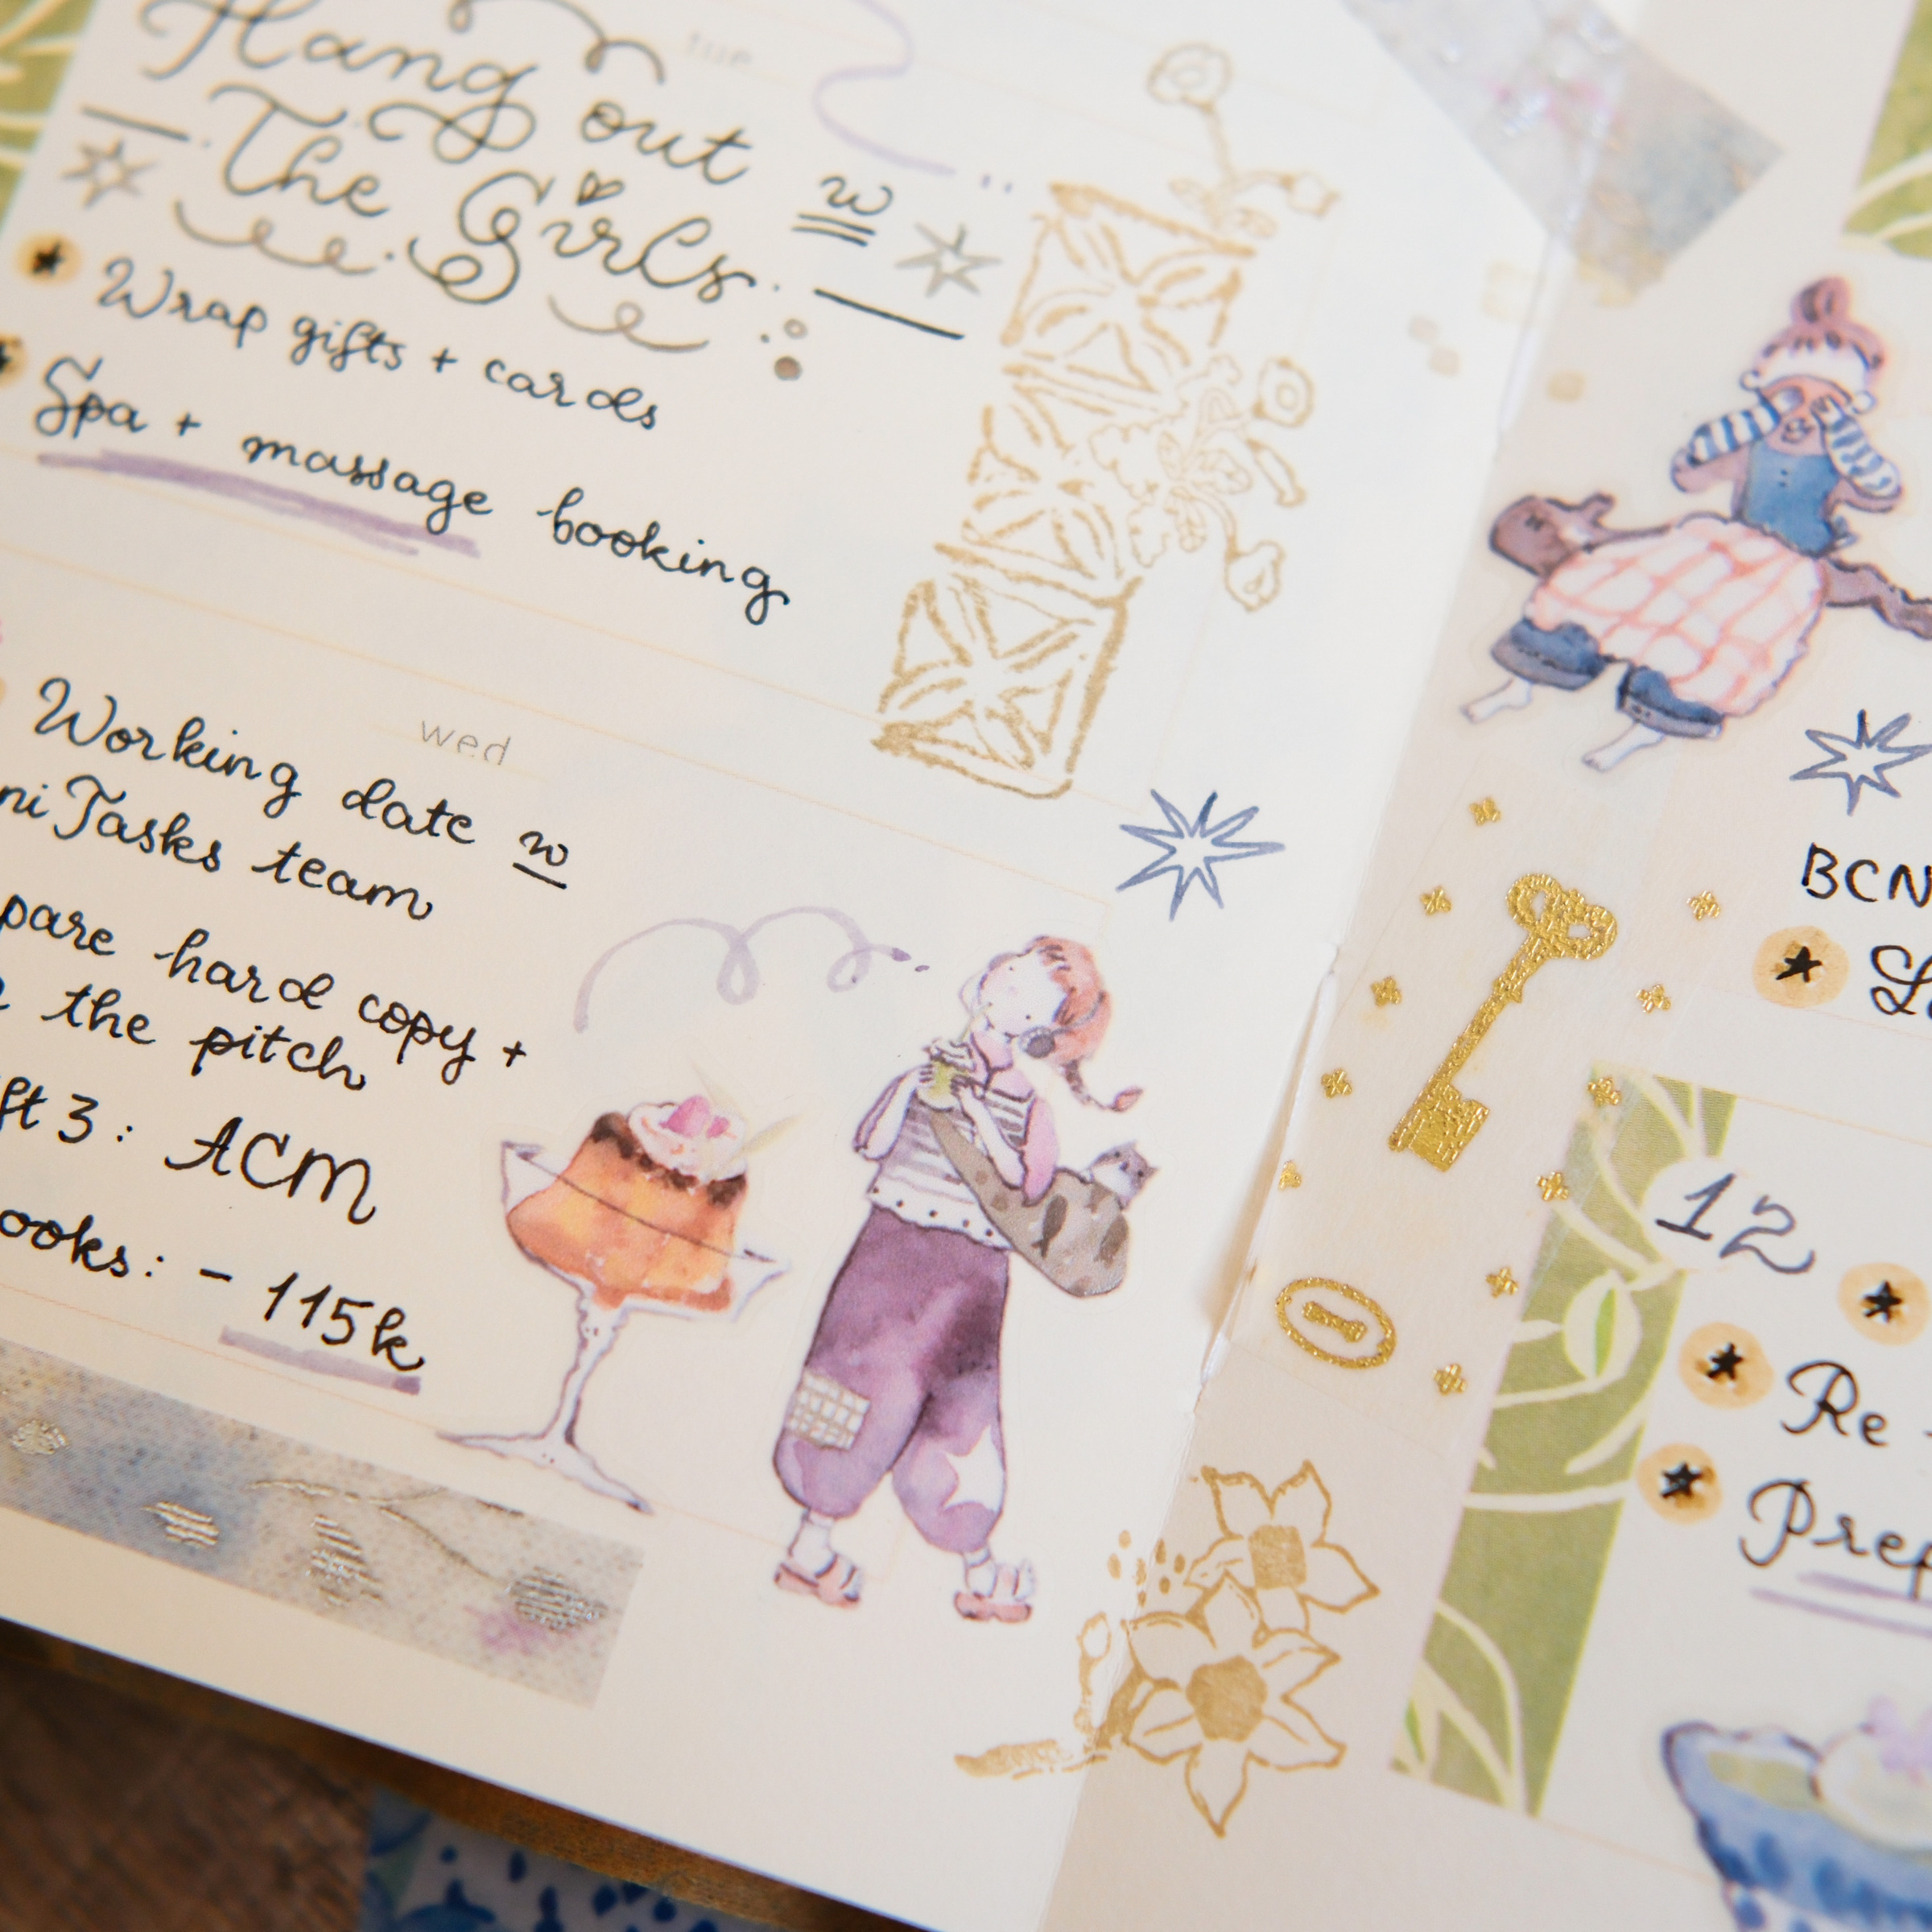 tue
Hang out w
The Girls
Wrap gifts + cards
Spa + massage booking
wed
Working date w
niTasks team
pare hard copy +
the pitch
ft 3: ACM
ooks: - 115k
BCN
12
Re -
Prep